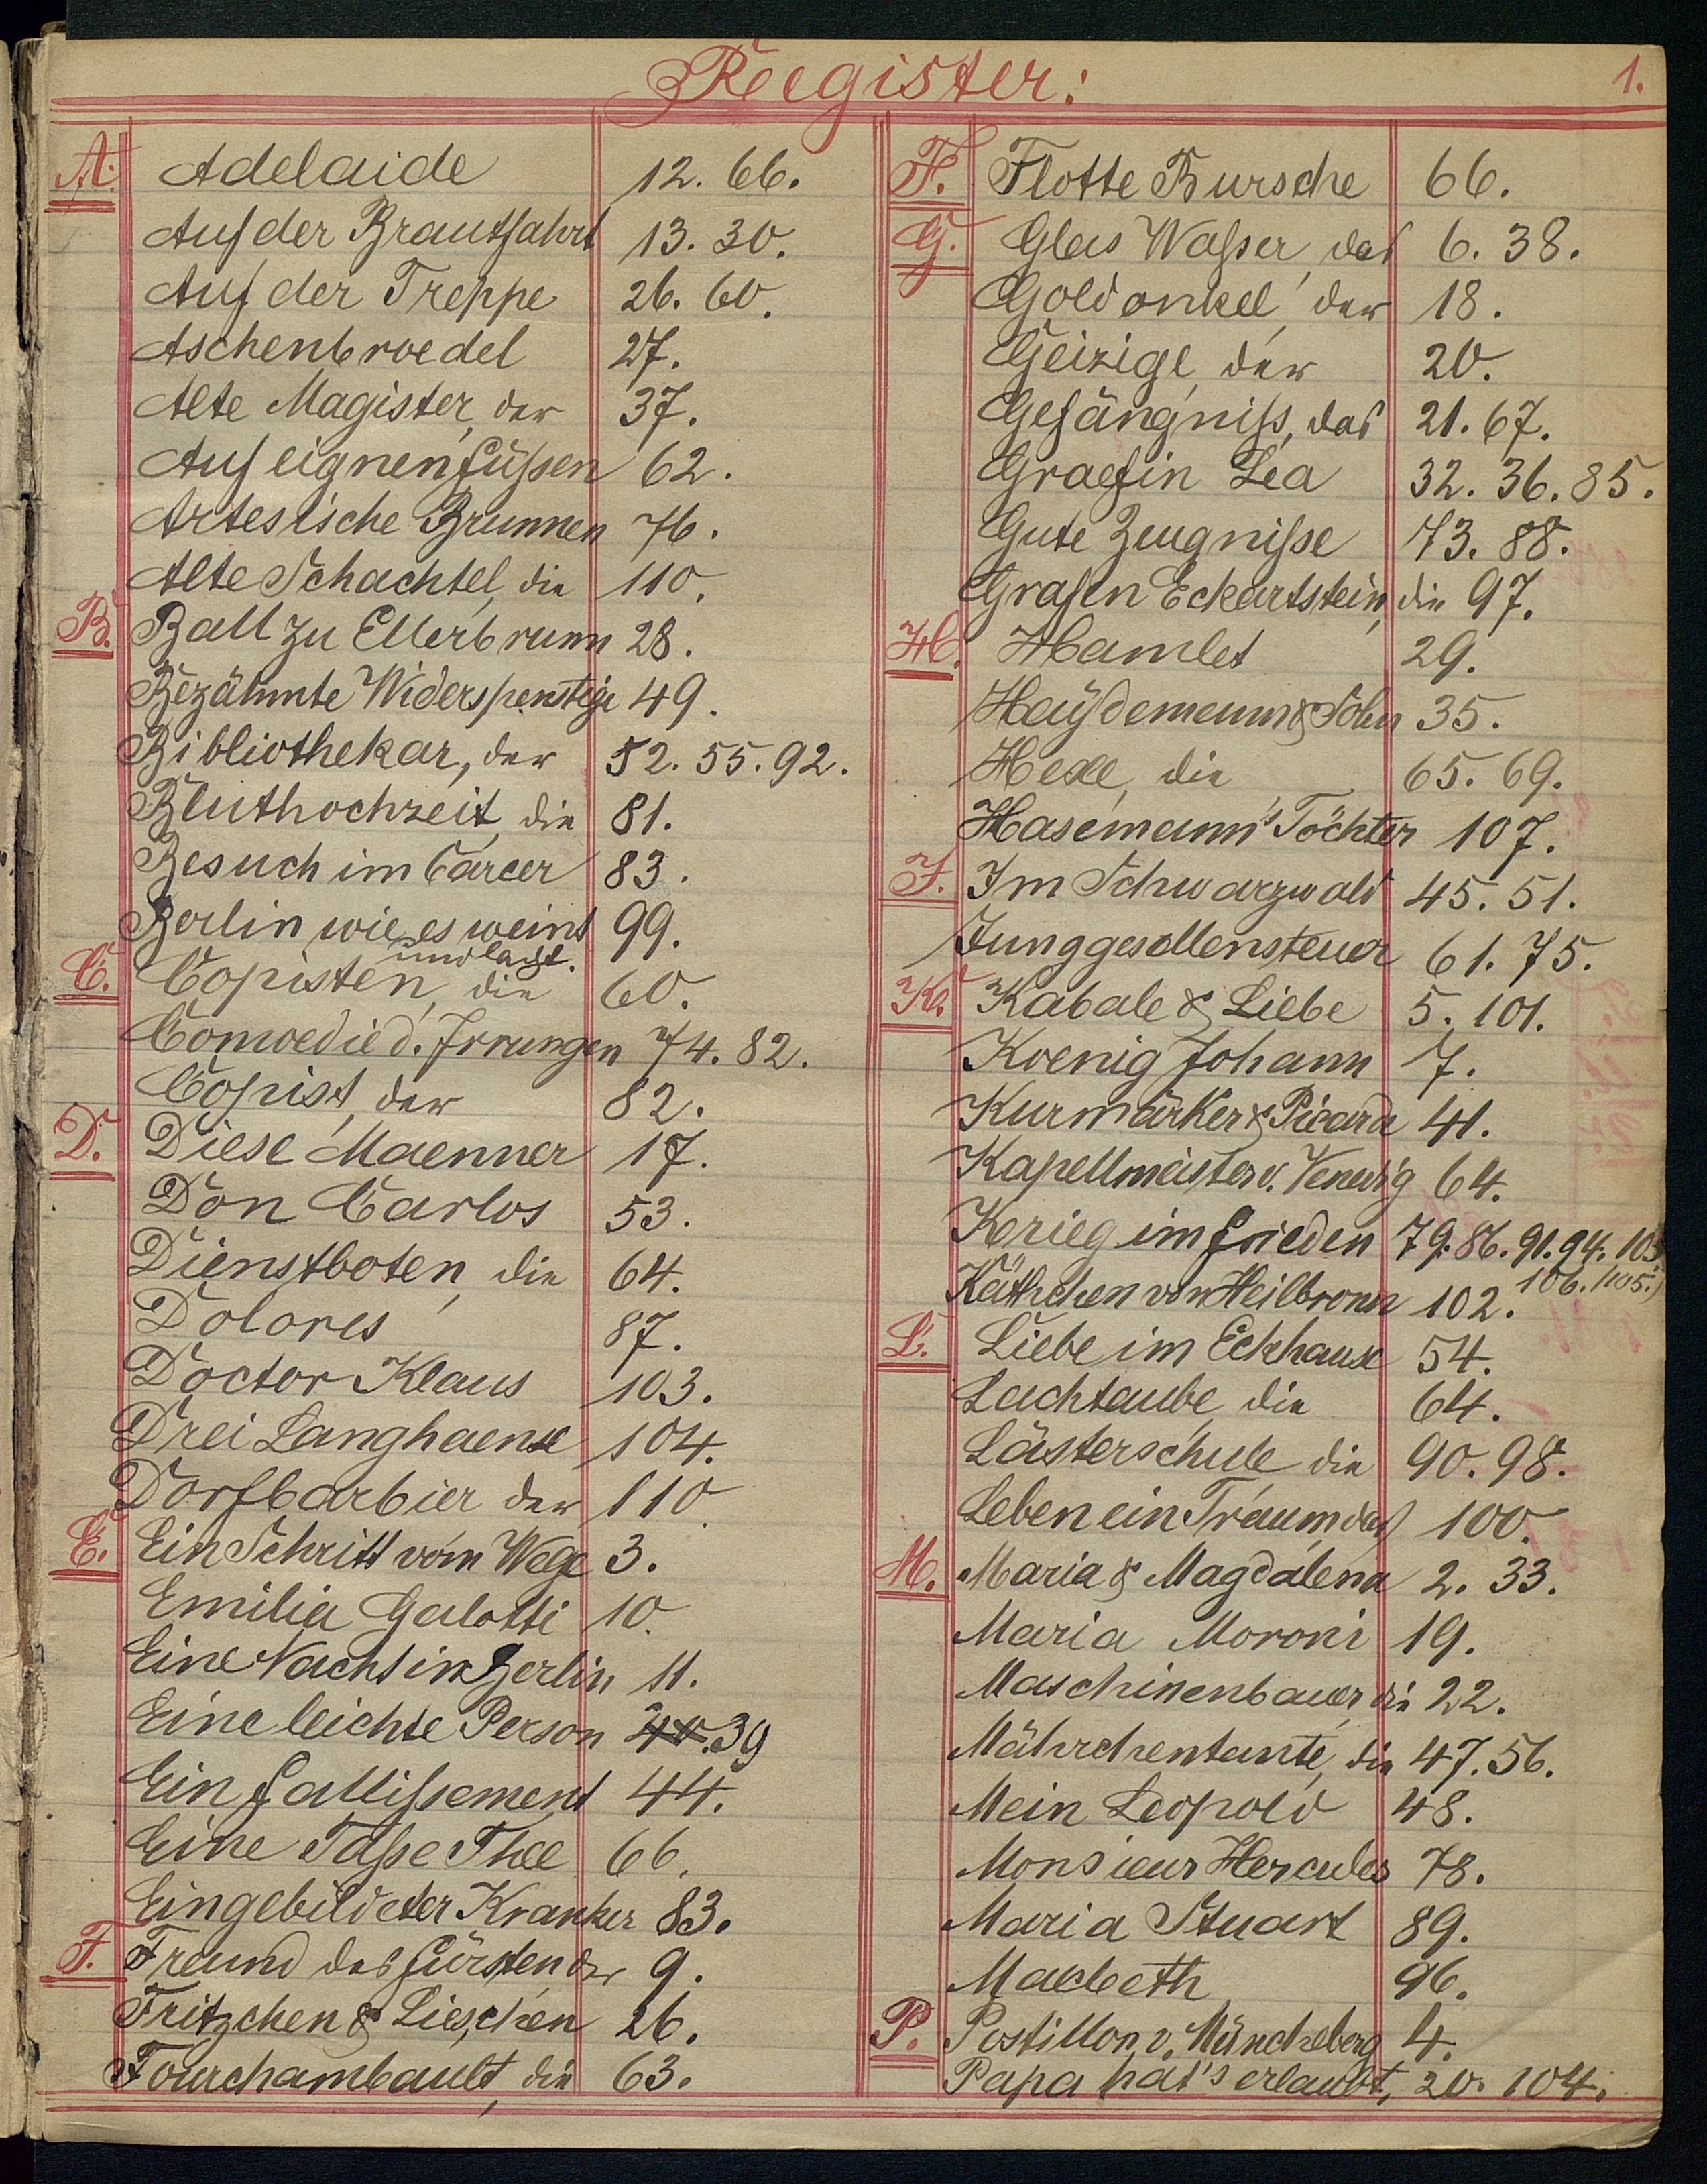 Register:
1.
A. Adelaide 12. 66.
Auf der Brautfahrt 13. 30.
Auf der Treppe 26. 60.
Aschenbroedel 27.
Alte Magister, der 37.
Auf eignen Füßen 62.
Artesische Brunnen 76.
Alte Schachtel, die 110.
B. Ball zu Ellerbrunn 28.
Bezähmte Widerspenstige 49.
Bibliothekar, der 52. 55. 92.
Bluthochzeit, die 81.
Besuch im Carcer 83.
Berlin wie es weint 99.
und lacht.
C. Copisten, die 60.
Comoedie d. Irrungen 74. 82.
Copist, der 82.
D. Diese Maenner 17.
Don Carlos 53.
Dienstboten, die 64.
Dolores 87.
Doctor Klaus 103.
Drei Langhaense 104.
Dorfbarbier der 110.
E. Ein Schritt vom Wege 3.
Emilia Galotti 10.
Eine Nacht in Berlin 11.
Eine leichte Person 40. 39
Ein Fallißement 44.
Eine Taße Thee 66.
Eingebildeter Kranker 83.
F. Freund des Fürsten der 9.
Fritzchen & Lieschen 26.
Fourchambault, die 63.
F. Flotte Bursche 66.
G. Glas Waßer, das 6. 38.
Goldonkel, der 18.
Geizige, der 20.
Gefängniß, das 21. 67.
Graefin Lea 32. 36. 85.
Gute Zeugniße 73. 88.
Grafen Eckartstein, die 97.
H. Hamlet 29.
Haÿdemann & Sohn 35.
Hexe, die 65. 69.
Hasemann's Töchter 107.
I. Im Schwarzwald 45. 51.
Junggesellensteuer 61. 75.
K. Kabale & Liebe 5. 101.
Koenig Johann 7.
Kurmärker & Picarde 41.
Kapellmeister v. Venedig 64.
Krieg im Frieden 79. 86. 91. 94. 105
106. /105./
Käthchen von Heilbronn 102.
L. Liebe im Eckhause 54.
Lachtaube, die 64.
Lästerschule die 90. 98.
Leben ein Traum, das 100.
M. Maria & Magdalena 2. 33.
Maria Moroni 19.
Maschinenbauer, die 22.
Mährchentante, die 47. 56.
Mein Leopold 48.
Monsieur Hercules 78.
Maria Stuart 89.
Macbeth 96.
P. Postillon v. Müncheberg 4.
Papa hat's erlaubt, 20. 104.